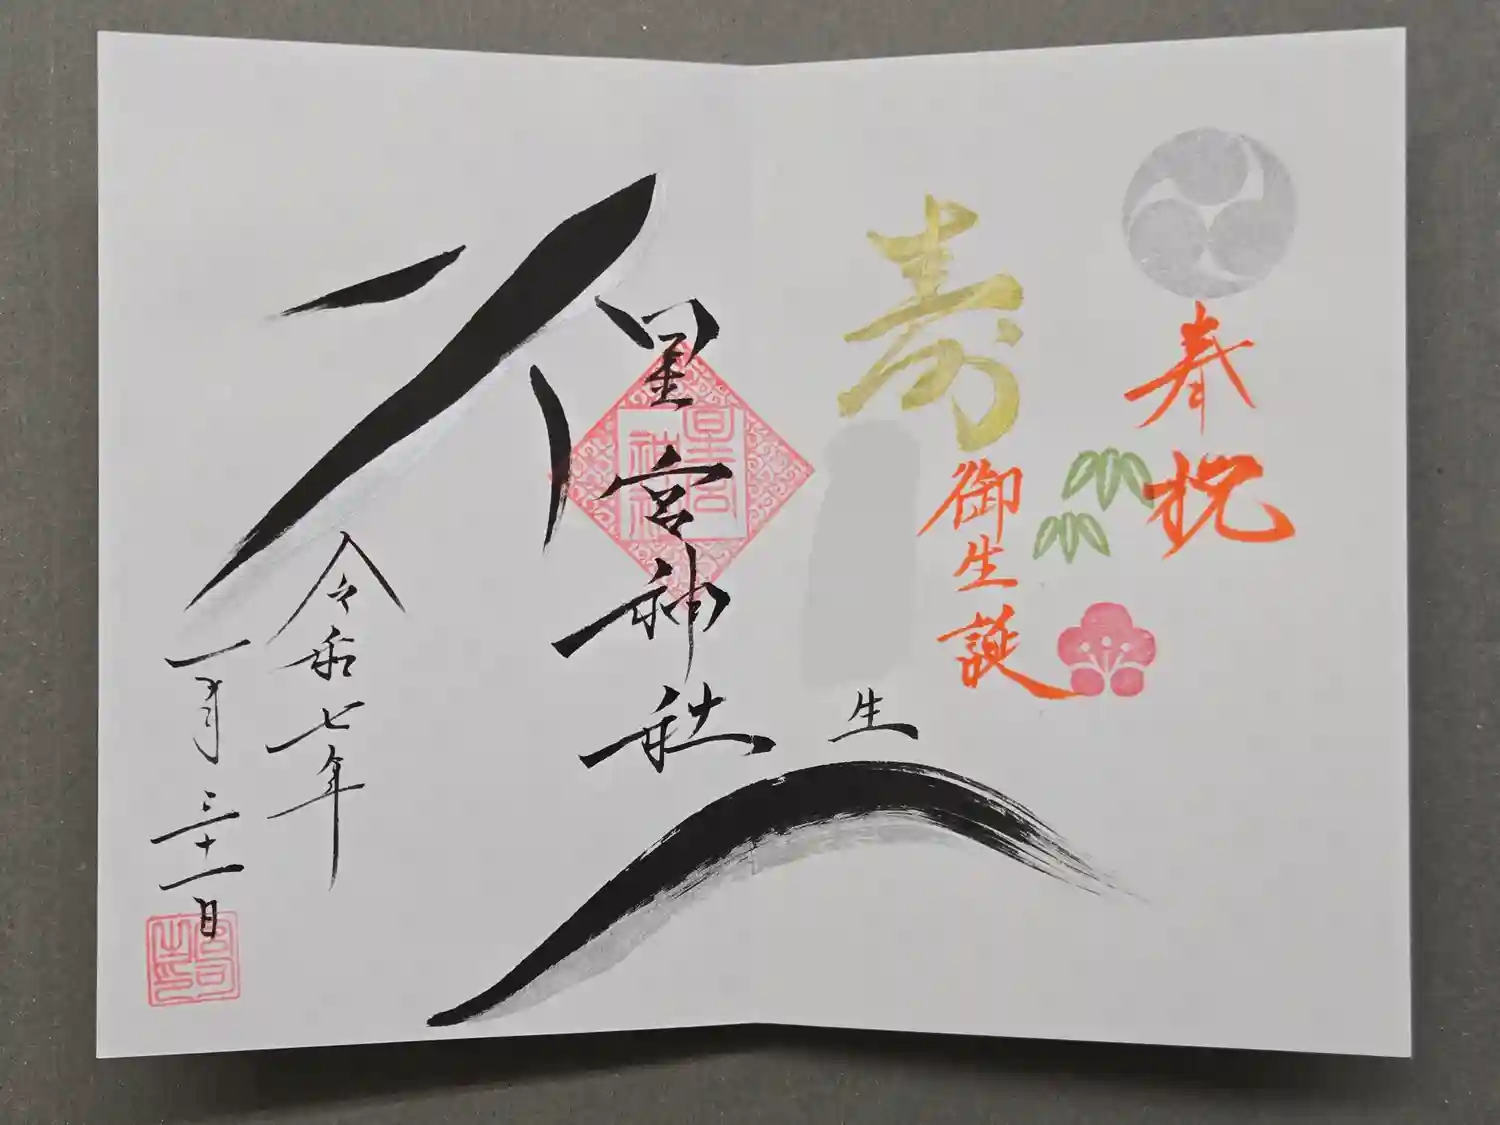 奉祝
寿
御生誕
生
星宮神社
星宮神社
令和七年
一月三十一日
宮司之印